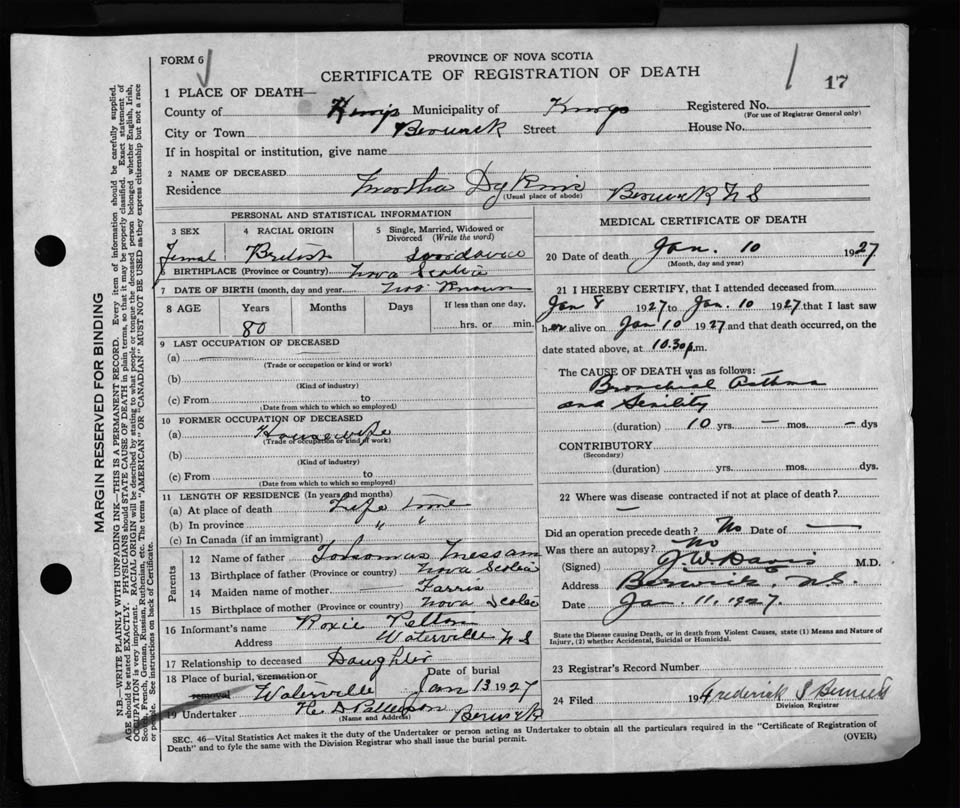 FORM 6
PROVINCE OF NOVA SCOTIA
CERTIFICATE OF REGISTRATION OF DEATH
17
1 PLACE OF DEATH—
County of Kings Municipality of Kings Registered No.
(For use of Registrar General only)
City or Town Berwick Street House No.
If in hospital or institution, give name
2 NAME OF DECEASED
Residence
(Usual place of abode)
Berwick N S
PERSONAL AND STATISTICAL INFORMATION
3 SEX 4 RACIAL ORIGIN 5 Single, Married, Widowed or Divorced (Write the word)
Femal British
6 BIRTHPLACE (Province or Country) Nova Scotia
7 DATE OF BIRTH (month, day and year) Not Known
8 AGE Years Months Days If less than one day,
80 hrs. or min.
9 LAST OCCUPATION OF DECEASED
(a)
(Trade or occupation or kind or work)
(b)
(Kind of industry)
(c) From to
(Date from which to which so employed)
10 FORMER OCCUPATION OF DECEASED
(a) Housewife
(Trade or occupation or kind of work)
(b)
(Kind of industry)
(c) From to
(Date from which to which so employed)
11 LENGTH OF RESIDENCE (In years and months)
(a) At place of death Life time
(b) In province " "
(c) In Canada (if an immigrant)
Parents
12 Name of father Messam
13 Birthplace of father (Province or country) Nova Scotia
14 Maiden name of mother — Farris
15 Birthplace of mother (Province or country) Nova Scotia
16 Informant's name Roxie
Address Waterville N S
17 Relationship to deceased Daughter
18 Place of burial, cremation or removal Date of burial
Waterville Jan 13 1927
19 Undertaker Berwick
(Name and Address)
MEDICAL CERTIFICATE OF DEATH
20 Date of death Jan. 10 1927
(Month, day and year)
21 I HEREBY CERTIFY, that I attended deceased from
Jan 8 1927 to Jan. 10 1927 that I last saw
her alive on Jan 10 1927 and that death occurred, on the
date stated above, at 10.30 p.m.
The CAUSE OF DEATH was as follows:
Bronchial Asthma
and Senility
(duration) 10 yrs. — mos. — dys
CONTRIBUTORY
(Secondary)
(duration) yrs. mos. dys.
22 Where was disease contracted if not at place of death?
—
Did an operation precede death? No Date of —
Was there an autopsy? No
(Signed) J. W. Davis M.D.
Address Berwick, N.S.
Date Jan. 11. 1927.
State the Disease causing Death, or in death from Violent Causes, state (1) Means and Nature of
Injury, (2) whether Accidental, Suicidal or Homicidal.
23 Registrar's Record Number
24 Filed 19 Frederick
Division Registrar
SEC. 46—Vital Statistics Act makes it the duty of the Undertaker or person acting as Undertaker to obtain all the particulars required in the "Certificate of Registration of
Death" and to fyle the same with the Division Registrar who shall issue the burial permit. (OVER)
MARGIN RESERVED FOR BINDING
N.B.—WRITE PLAINLY WITH UNFADING INK—THIS IS A PERMANENT RECORD. Every item of information should be carefully supplied.
AGE should be stated EXACTLY. PHYSICIANS should STATE CAUSE OF DEATH in plain terms, so that it may be properly classified. Exact statement of
OCCUPATION is very important. RACIAL ORIGIN will be described by stating to what people or tongue the deceased person belonged whether English, Irish,
Scotch, French, German, Russian, Ruthenian, etc. The terms "AMERICAN" or "CANADIAN" MUST NOT BE USED as they express citizenship but not a race
or people. See instructions on back of Certificate.